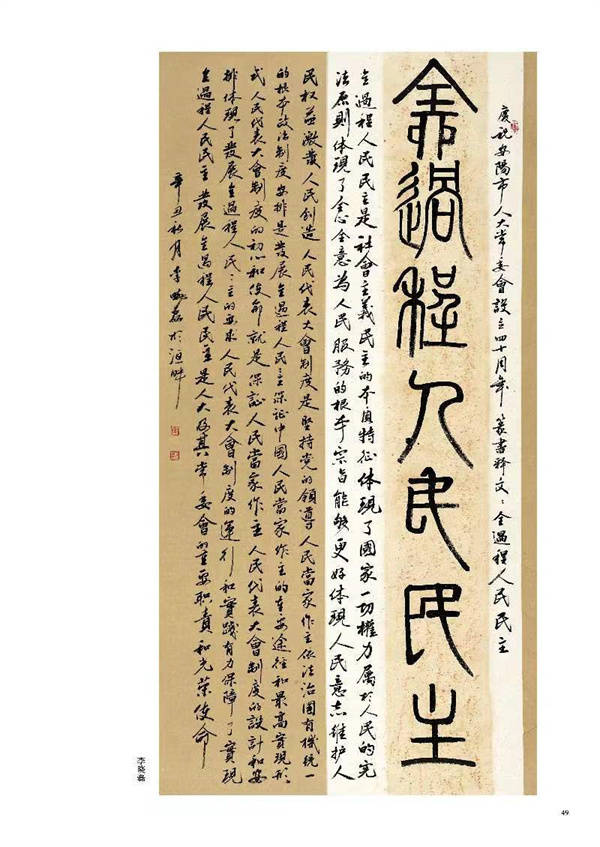 慶祝安陽市人大常委會設立四十周年 篆書釋文：全過程人民民主
全過程人民民主
全過程人民民主是社會主義民主的本質特征体現了國家一切權力属於人民的宪
法原则体現了全心全意为人民服務的根本宗旨能够更好体現人民意志维护人
民权益激發人民創造人民代表大會制度是堅持党的領導人民當家作主依法治國有機統一
的根本政治制度安排是發展全過程人民民主保证中國人民當家作主的重要途徑和最高實現形
式人民代表大會制度的初心和使命就是保证人民當家作主人民代表大會制度的設計和安
排体現了發展全過程人民民主的要求人民代表大會制度的運行和實踐有力保障了實現
全過程人民民主發展全過程人民民主是人大及其常委會的重要職責和光荣使命
辛丑秋月李晓磊於洹畔
李晓磊
49